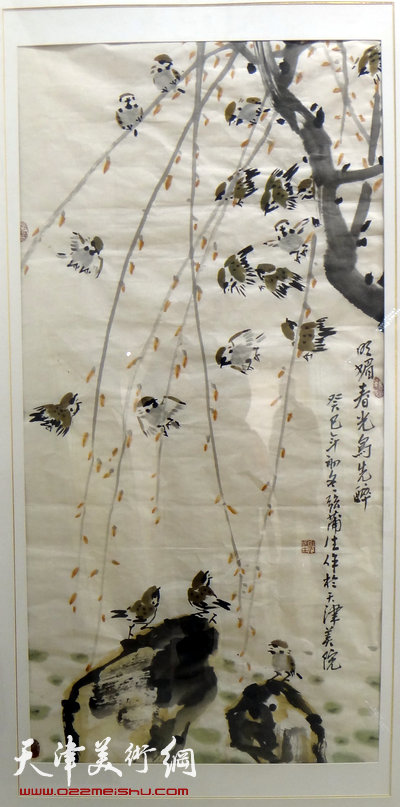 明媚春光鸟先醉
癸巳年初冬张蒲生作於天津美院
天津美術網
www.022meishu.com